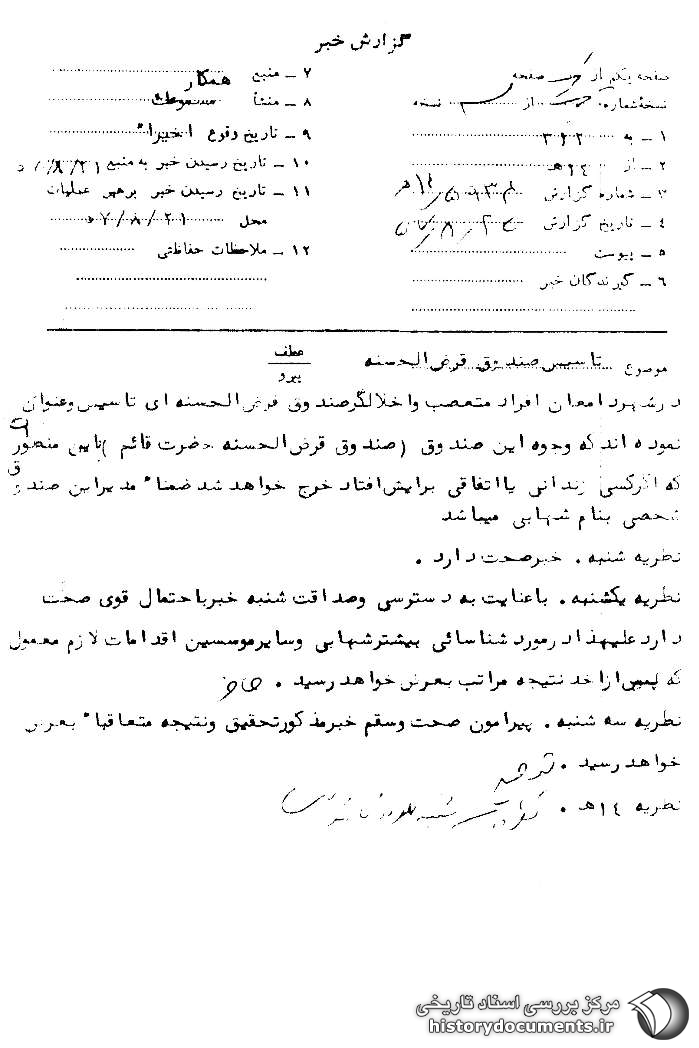 گزارش خبر
صفحه یکم از صفحه
نسخه شماره از نسخه
۱ – به ۳۱۲
۲ – از ۱۴ هـ
۳ – شماره گزارش
۴ – تاریخ گزارش
۵ – پیوست
۶ – گیرندگان خبر
۷ – منبع همکار
۸ – منشأ مسموعات
۹ – تاریخ وقوع اخیرا"
۱۰ – تاریخ رسیدن خبر به منبع
۱۱ – تاریخ رسیدن خبر برهبر عملیات
محل ۵۷/۸/۲۱
۱۲ – ملاحظات حفاظتی
موضوع تاسیس صندوق قرض الحسنه
عطف
پیرو
در شهرد امعان افراد متعصب و اخلالگر صندوق قرض الحسنه ای تاسیس و عنوان
نموده اند که وجوه این صندوق (صندوق قرض الحسنه حضرت قائم ) باین منظور
که اگر کسی زندانی یا اتفاقی برایش افتاد خرج خواهد شد ضمنا" مدیر این صندوق
شخصی بنام شهابی میباشد
نظریه شنبه . خبر صحت دارد .
نظریه یکشنبه . با عنایت به دسترسی و صداقت شنبه خبر با احتمال قوی صحت
دارد علیهذا در مورد شناسائی بیشتر شهابی و سایر موسسین اقدامات لازم معمول
که پس از اخذ نتیجه مراتب بعرض خواهد رسید .
نظریه سه شنبه . پیرامون صحت و سقم خبر مذکور تحقیق و نتیجه متعاقبا" بعرض
خواهد رسید .
نظریه ۱۴ هـ .
مرکز بررسی اسناد تاریخی
historydocuments.ir